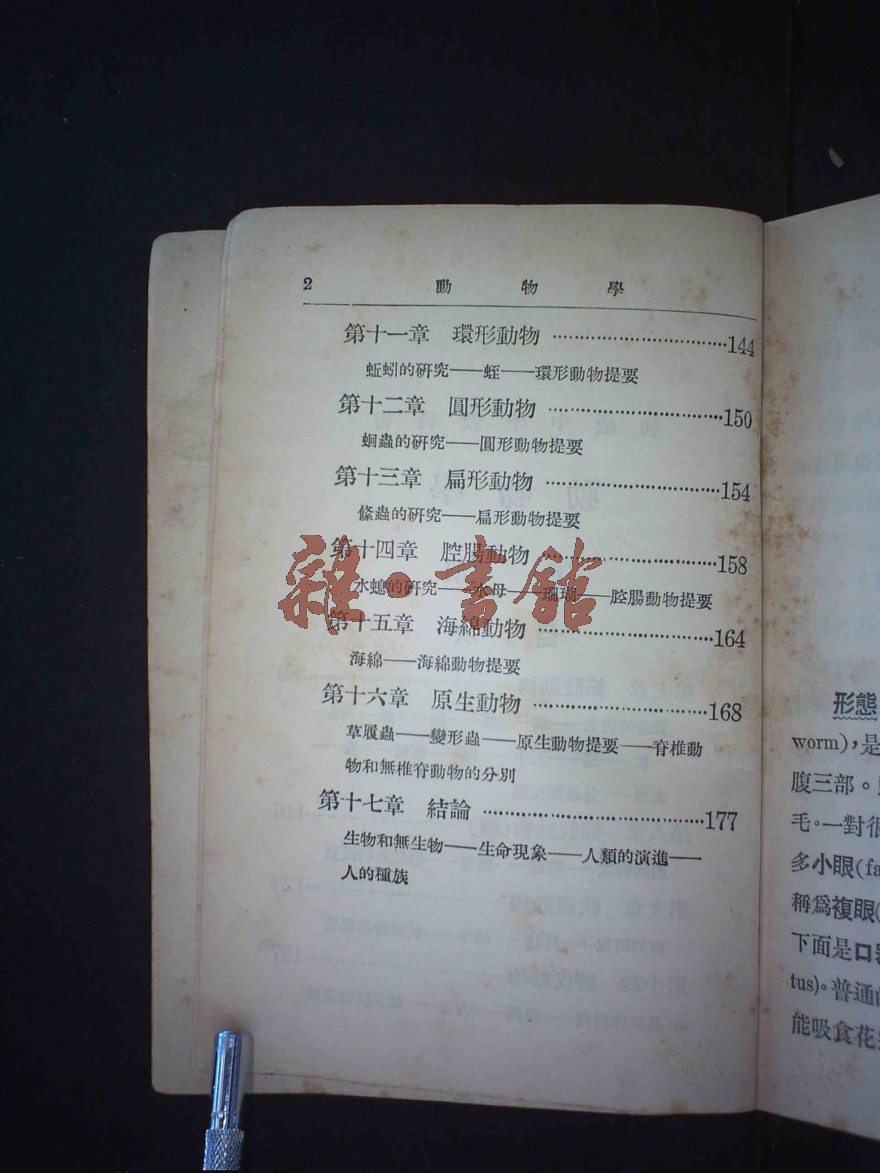 2 動物學
第十一章 環形動物 ································144
蚯蚓的研究——蛭——環形動物提要
第十二章 圓形動物 ································150
蛔蟲的研究——圓形動物提要
第十三章 扁形動物 ································154
絛蟲的研究——扁形動物提要
第十四章 腔腸動物 ································158
水螅的研究——水母——珊瑚——腔腸動物提要
第十五章 海綿動物 ································164
海綿——海綿動物提要
第十六章 原生動物 ································168
草履蟲——變形蟲——原生動物提要——脊椎動
物和無椎脊動物的分別
第十七章 結論 ································177
生物和無生物——生命現象——人類的演進——
人的種族
雜·書館
形態
worm),是
腹三部。
毛。一對很
多小眼(fa
稱爲複眼(
下面是口器
tus)。普通的
能吸食花